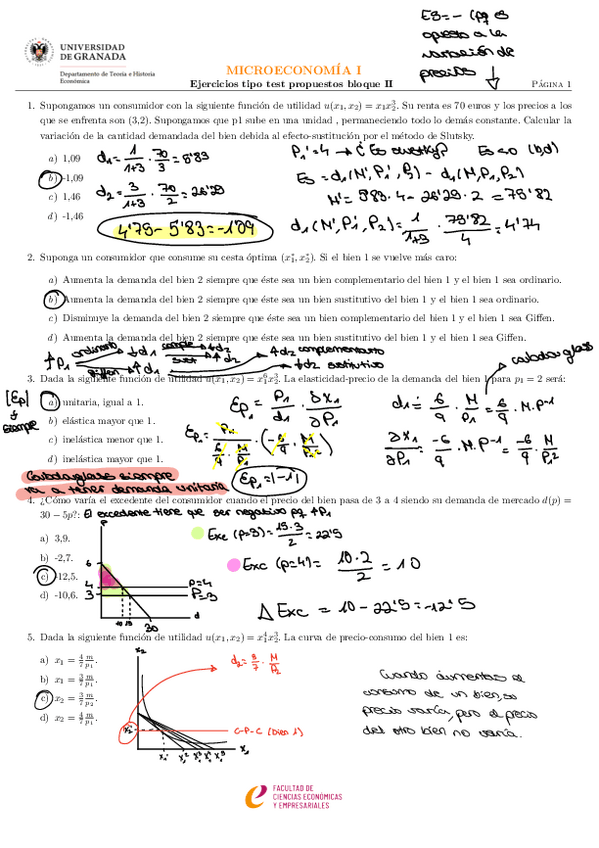 ES = - (pq es
opuesto a la
variación de
precios ↓
UNIVERSIDAD
DE GRANADA
Departamento de Teoría e Historia
Económica
MICROECONOMÍA I
Ejercicios tipo test propuestos bloque II
PÁGINA 1
1. Supongamos un consumidor con la siguiente función de utilidad u(x₁, x₂) = x₁x₂³. Su renta es 70 euros y los precios a los
que se enfrenta son (3,2). Supongamos que p1 sube en una unidad , permaneciendo todo lo demás constante. Calcular la
variación de la cantidad demandada del bien debida al efecto-sustitución por el método de Slutsky.
a) 1,09
b) -1,09
c) 1,46
d) -1,46
d₁ = 1/1+3 · 70/3 = 5'83
d₂ = 3/1+3 · 70/2 = 26'29
4'75 - 5'83 = -1'09
P₁' = 4 → ES < 0 (b,d)
ES = d₁(M', P₁', P₂) - d₁(M, P₁, P₂)
M' = 5'83 · 4 - 26'29 · 2 = 75'82
d₁(M', P₁', P₂) = 1/1+3 · 75'82/4 = 4'74
2. Suponga un consumidor que consume su cesta óptima (x₁*, x₂*). Si el bien 1 se vuelve más caro:
a) Aumenta la demanda del bien 2 siempre que éste sea un bien complementario del bien 1 y el bien 1 sea ordinario.
b) Aumenta la demanda del bien 2 siempre que éste sea un bien sustitutivo del bien 1 y el bien 1 sea ordinario.
c) Disminuye la demanda del bien 2 siempre que éste sea un bien sustitutivo del bien 1 y el bien 1 sea Giffen.
d) Aumenta la demanda del bien 2 siempre que éste sea un bien sustitutivo del bien 1 y el bien 1 sea Giffen.
↑P₁ ordinario ↓d₁ comple ↓d₂
sust ↑d₂
giffen ↑d₁ ↑d₂ complementario
↓d₂ sustitutivo
cobb douglas
3. Dada la siguiente función de utilidad u(x₁, x₂) = x₁⁶x₂³. La elasticidad-precio de la demanda del bien 1 para p₁ = 2 será:
a) unitaria, igual a 1.
b) elástica mayor que 1.
c) inelástica menor que 1.
d) inelástica mayor que 1.
|Ep|
siempre
Ep₁ = P₁/d₁ · ∂x₁/∂P₁
d₁ = 6/9 · M/P₁ = 6/9 · M · P⁻¹
∂x₁/∂P₁ = -6/9 · M · P⁻¹ = -6/9 · M/P₁²
Ep₁ = |-1|
Cobb douglas siempre
va a tener demanda unitaria
4. ¿Cómo varía el excedente del consumidor cuando el precio del bien pasa de 3 a 4 siendo su demanda de mercado d(p) =
30 − 5p?: El excedente tiene que ser negativo pq ↑P₁
a) 3,9.
b) -2,7.
c) -12,5.
d) -10,6.
P
6
4
3
P=4
P=3
10 15
30
d
Exc (p=3) = 15·3/2 = 22'5
Exc (p=4) = 10·2/2 = 10
Δ Exc = 10 - 22'5 = -12'5
5. Dada la siguiente función de utilidad u(x₁, x₂) = x₁⁴x₂³. La curva de precio-consumo del bien 1 es:
a) x₁ = 4/7 m/p₁.
b) x₁ = 3/7 m/p₁.
c) x₂ = 3/7 m/p₂.
d) x₂ = 4/7 m/p₁.
x₂
x₂*
d₂ = 3/7 · M/P₂
C-P-C (bien 1)
x₁
Cuando aumentas el
consumo de un bien, su
precio varía, pero el precio
del otro bien no varía.
FACULTAD DE
CIENCIAS ECONÓMICAS
Y EMPRESARIALES